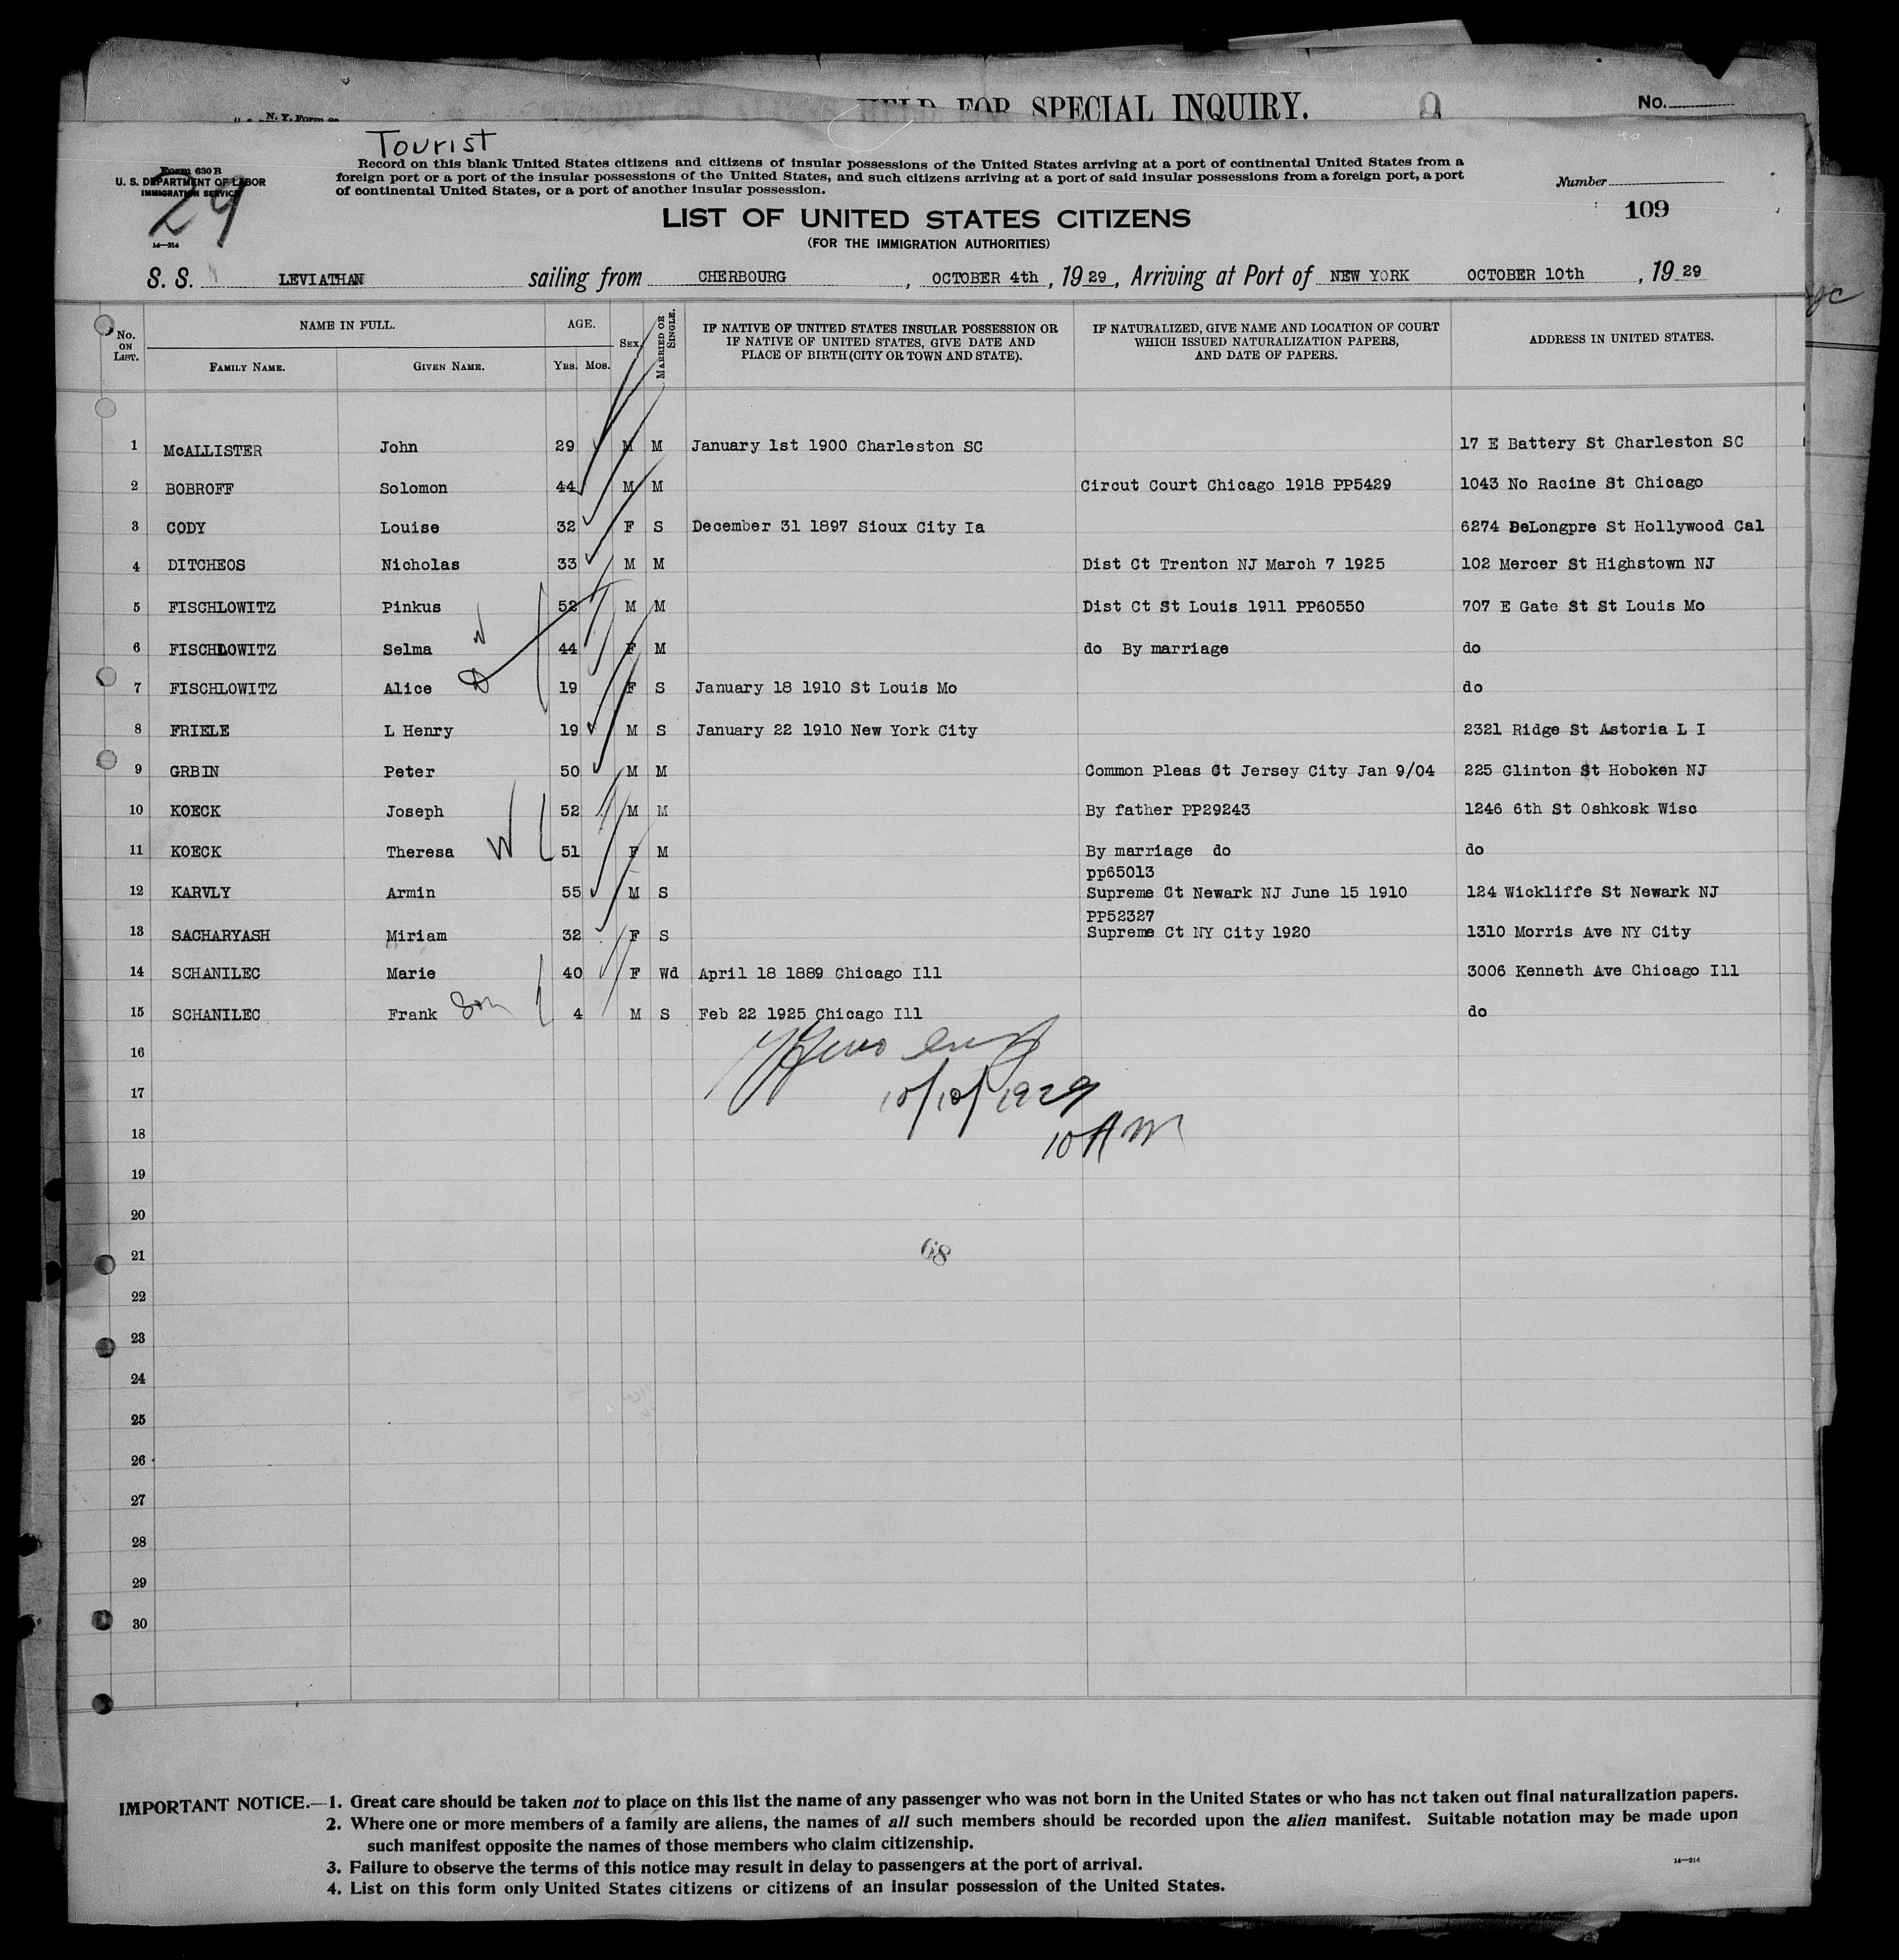 HELD FOR SPECIAL INQUIRY.
No.
N. Y. Form
Tourist
Form 630 B
U. S. DEPARTMENT OF LABOR
IMMIGRATION SERVICE
29
14—214
Record on this blank United States citizens and citizens of insular possessions of the United States arriving at a port of continental United States from a
foreign port or a port of the insular possessions of the United States, and such citizens arriving at a port of said insular possessions from a foreign port, a port
of continental United States, or a port of another insular possession.
Number
109
LIST OF UNITED STATES CITIZENS
(FOR THE IMMIGRATION AUTHORITIES)
S. S. LEVIATHAN sailing from CHERBOURG, OCTOBER 4th, 1929, Arriving at Port of NEW YORK OCTOBER 10th, 1929
No. ON LIST. NAME IN FULL. FAMILY NAME. GIVEN NAME. AGE. YRS. MOS. SEX. MARRIED OR SINGLE. IF NATIVE OF UNITED STATES INSULAR POSSESSION OR IF NATIVE OF UNITED STATES, GIVE DATE AND PLACE OF BIRTH (CITY OR TOWN AND STATE). IF NATURALIZED, GIVE NAME AND LOCATION OF COURT WHICH ISSUED NATURALIZATION PAPERS, AND DATE OF PAPERS. ADDRESS IN UNITED STATES.
1 McALLISTER John 29 M M January 1st 1900 Charleston SC 17 E Battery St Charleston SC
2 BOBROFF Solomon 44 M M Circut Court Chicago 1918 PP5429 1043 No Racine St Chicago
3 CODY Louise 32 F S December 31 1897 Sioux City Ia 6274 DeLongpre St Hollywood Cal
4 DITCHEOS Nicholas 33 M M Dist Ct Trenton NJ March 7 1925 102 Mercer St Highstown NJ
5 FISCHLOWITZ Pinkus 52 M M Dist Ct St Louis 1911 PP60550 707 E Gate St St Louis Mo
6 FISCHLOWITZ Selma W 44 F M do By marriage do
7 FISCHLOWITZ Alice D 19 F S January 18 1910 St Louis Mo do
8 FRIELE L Henry 19 M S January 22 1910 New York City 2321 Ridge St Astoria L I
9 GRBIN Peter 50 M M Common Pleas Ct Jersey City Jan 9/04 225 Clinton St Hoboken NJ
10 KOECK Joseph 52 M M By father PP29243 1246 6th St Oshkosk Wisc
11 KOECK Theresa W 51 F M By marriage do do
pp65013
12 KARVLY Armin 55 M S Supreme Ct Newark NJ June 15 1910 124 Wickliffe St Newark NJ
PP52327
13 SACHARYASH Miriam 32 F S Supreme Ct NY City 1920 1310 Morris Ave NY City
14 SCHANILEC Marie 40 F Wd April 18 1889 Chicago Ill 3006 Kenneth Ave Chicago Ill
15 SCHANILEC Frank Son 4 M S Feb 22 1925 Chicago Ill do
16
17 10/10/1929
18 10 AM
19
20
21 68
22
23
24
25
26
27
28
29
30
IMPORTANT NOTICE.—1. Great care should be taken not to place on this list the name of any passenger who was not born in the United States or who has not taken out final naturalization papers.
2. Where one or more members of a family are aliens, the names of all such members should be recorded upon the alien manifest. Suitable notation may be made upon
such manifest opposite the names of those members who claim citizenship.
3. Failure to observe the terms of this notice may result in delay to passengers at the port of arrival.
4. List on this form only United States citizens or citizens of an insular possession of the United States.
14—214